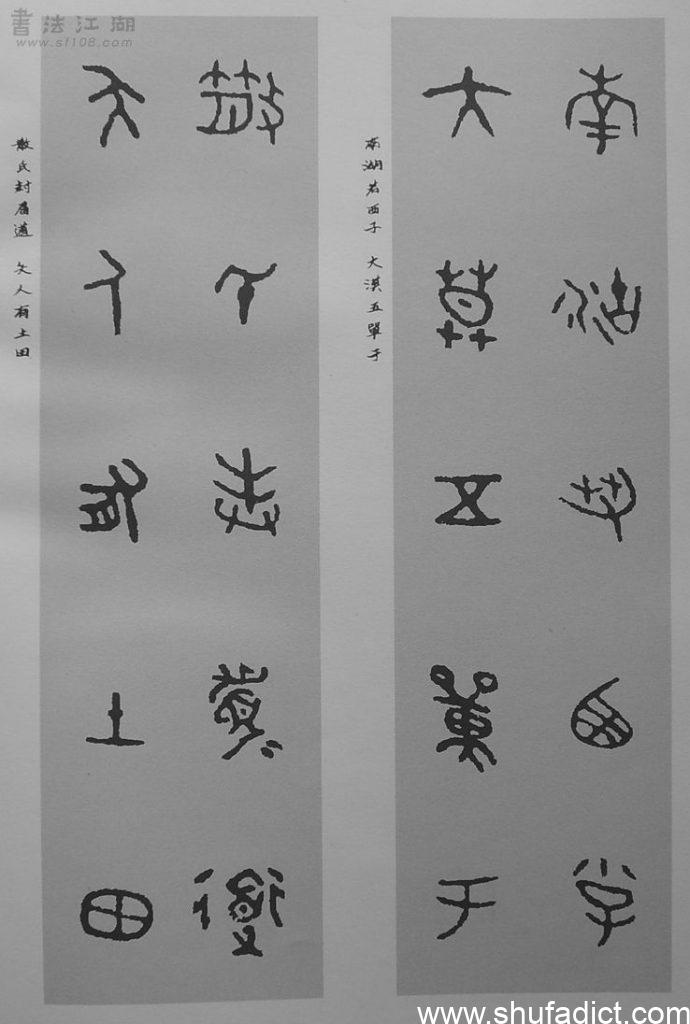 書法江湖
www.sf108.com
南湖若西子
大漠五單于
南湖若西子 大漠五單于
散氏封眉道
文人有土田
散氏封眉道 文人有土田
www.shufadict.com